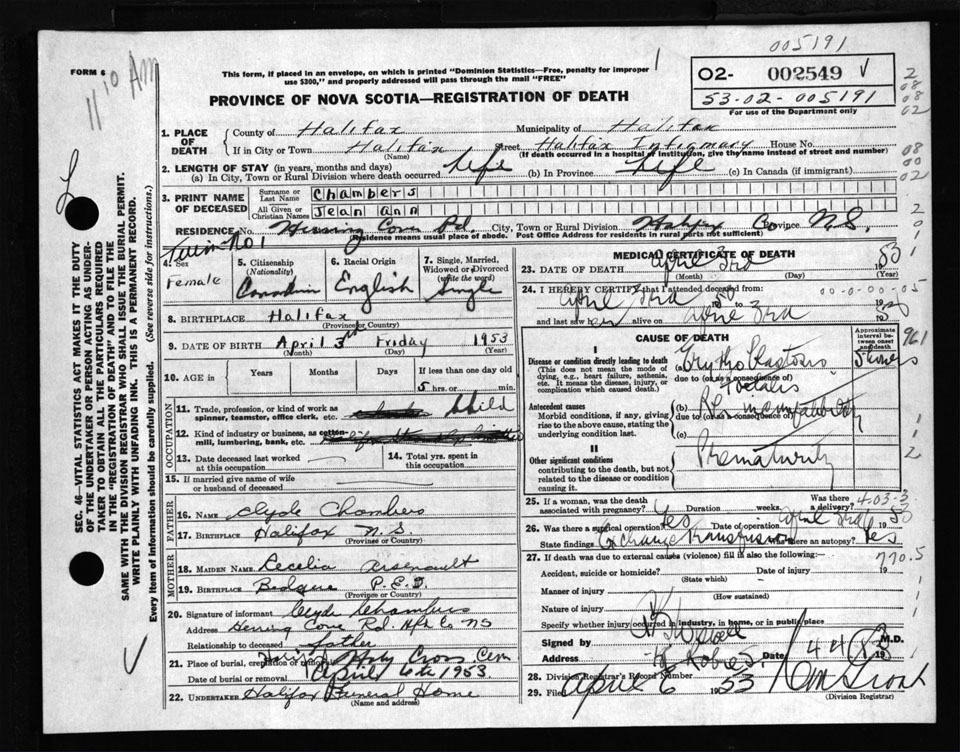 005191
FORM 6
11 10 AM
This form, if placed in an envelope, on which is printed "Dominion Statistics—Free, penalty for improper
use $300," and properly addressed will pass through the mail "FREE"
O2- 002549 V
53-02-005191
For use of the Department only
PROVINCE OF NOVA SCOTIA—REGISTRATION OF DEATH
1. PLACE OF DEATH County of Halifax Municipality of Halifax
If in City or Town Halifax Street Halifax Infirmary House No.
(Name) (If death occurred in a hospital or institution, give the name instead of street and number)
2. LENGTH OF STAY (in years, months and days)
(a) In City, Town or Rural Division where death occurred life (b) In Province life (c) In Canada (if immigrant)
3. PRINT NAME OF DECEASED Surname or Last Name Chambers
All Given or Christian Names Jean Ann
RESIDENCE No. Herring Cove Rd. City, Town or Rural Division Halifax Co Province N.S.
(Residence means usual place of abode. Post Office Address for residents in rural parts not sufficient)
Twin No 1
4. Sex Female
5. Citizenship (Nationality) Canadian
6. Racial Origin English
7. Single, Married, Widowed or Divorced (write the word) Single
8. BIRTHPLACE Halifax
(Province or Country)
9. DATE OF BIRTH April 3rd Friday 1953
(Month) (Day) (Year)
10. AGE in Years Months Days If less than one day old
5 hrs. or min.
OCCUPATION
11. Trade, profession, or kind of work as spinner, teamster, office clerk, etc. Child
12. Kind of industry or business, as cotton-mill, lumbering, bank, etc.
13. Date deceased last worked at this occupation
14. Total yrs. spent in this occupation
15. If married give name of wife or husband of deceased
FATHER
16. Name Clyde Chambers
17. Birthplace Halifax N.S.
(Province or Country)
MOTHER
18. Maiden Name Cecelia Arsenault
19. Birthplace P.E.I.
(Province or Country)
20. Signature of informant Clyde Chambers
Address Herring Cove Rd. Hfx Co NS
Relationship to deceased father
21. Place of burial, cremation or removal Holy Cross Cem
Date of burial or removal April 6th 1953.
22. Undertaker Halifax Funeral Home
(Name and address)
MEDICAL CERTIFICATE OF DEATH
23. DATE OF DEATH April 3rd 1953
(Month) (Day) (Year)
24. I HEREBY CERTIFY that I attended deceased from
April 3rd 1953 to 00-0-00-05
and last saw her alive on April 3rd 1953
CAUSE OF DEATH
Approximate interval between onset and death
I
Disease or condition directly leading to death
(This does not mean the mode of dying, e.g., heart failure, asthenia, etc. It means the disease, injury, or complication which caused death.)
(a) Erythroblastosis Foetalis 5 hours
due to (or as a consequence of)
Antecedent causes
Morbid conditions, if any, giving rise to the above cause, stating the underlying condition last.
(b) Rh incompatability
due to (or as a consequence of)
(c)
II
Other significant conditions
contributing to the death, but not related to the disease or condition causing it.
Prematurity
961
25. If a woman, was the death associated with pregnancy? Duration weeks. Was there a delivery?
403-3
26. Was there a surgical operation? Yes Date of operation April 3rd 1953
State findings Exchange transfusion Was there an autopsy? Yes
27. If death was due to external causes (violence) fill in also the following:—
Accident, suicide or homicide? Date of injury 19
(State which)
770.5
Manner of injury
(How sustained)
Nature of injury
Specify whether injury occurred in industry, in home, or in public place
Signed by M.D.
Address Date 4 4 1953
28. Division Registrar's Record Number
29. Filed April 6 1953
(Division Registrar)
SEC. 46—VITAL STATISTICS ACT MAKES IT THE DUTY
OF THE UNDERTAKER OR PERSON ACTING AS UNDER-
TAKER TO OBTAIN ALL THE PARTICULARS REQUIRED
IN THE "REGISTRATION OF DEATH" AND TO FILE THE
SAME WITH THE DIVISION REGISTRAR WHO SHALL ISSUE THE BURIAL PERMIT.
WRITE PLAINLY WITH UNFADING INK. THIS IS A PERMANENT RECORD.
Every item of information should be carefully supplied. (See reverse side for instructions.)